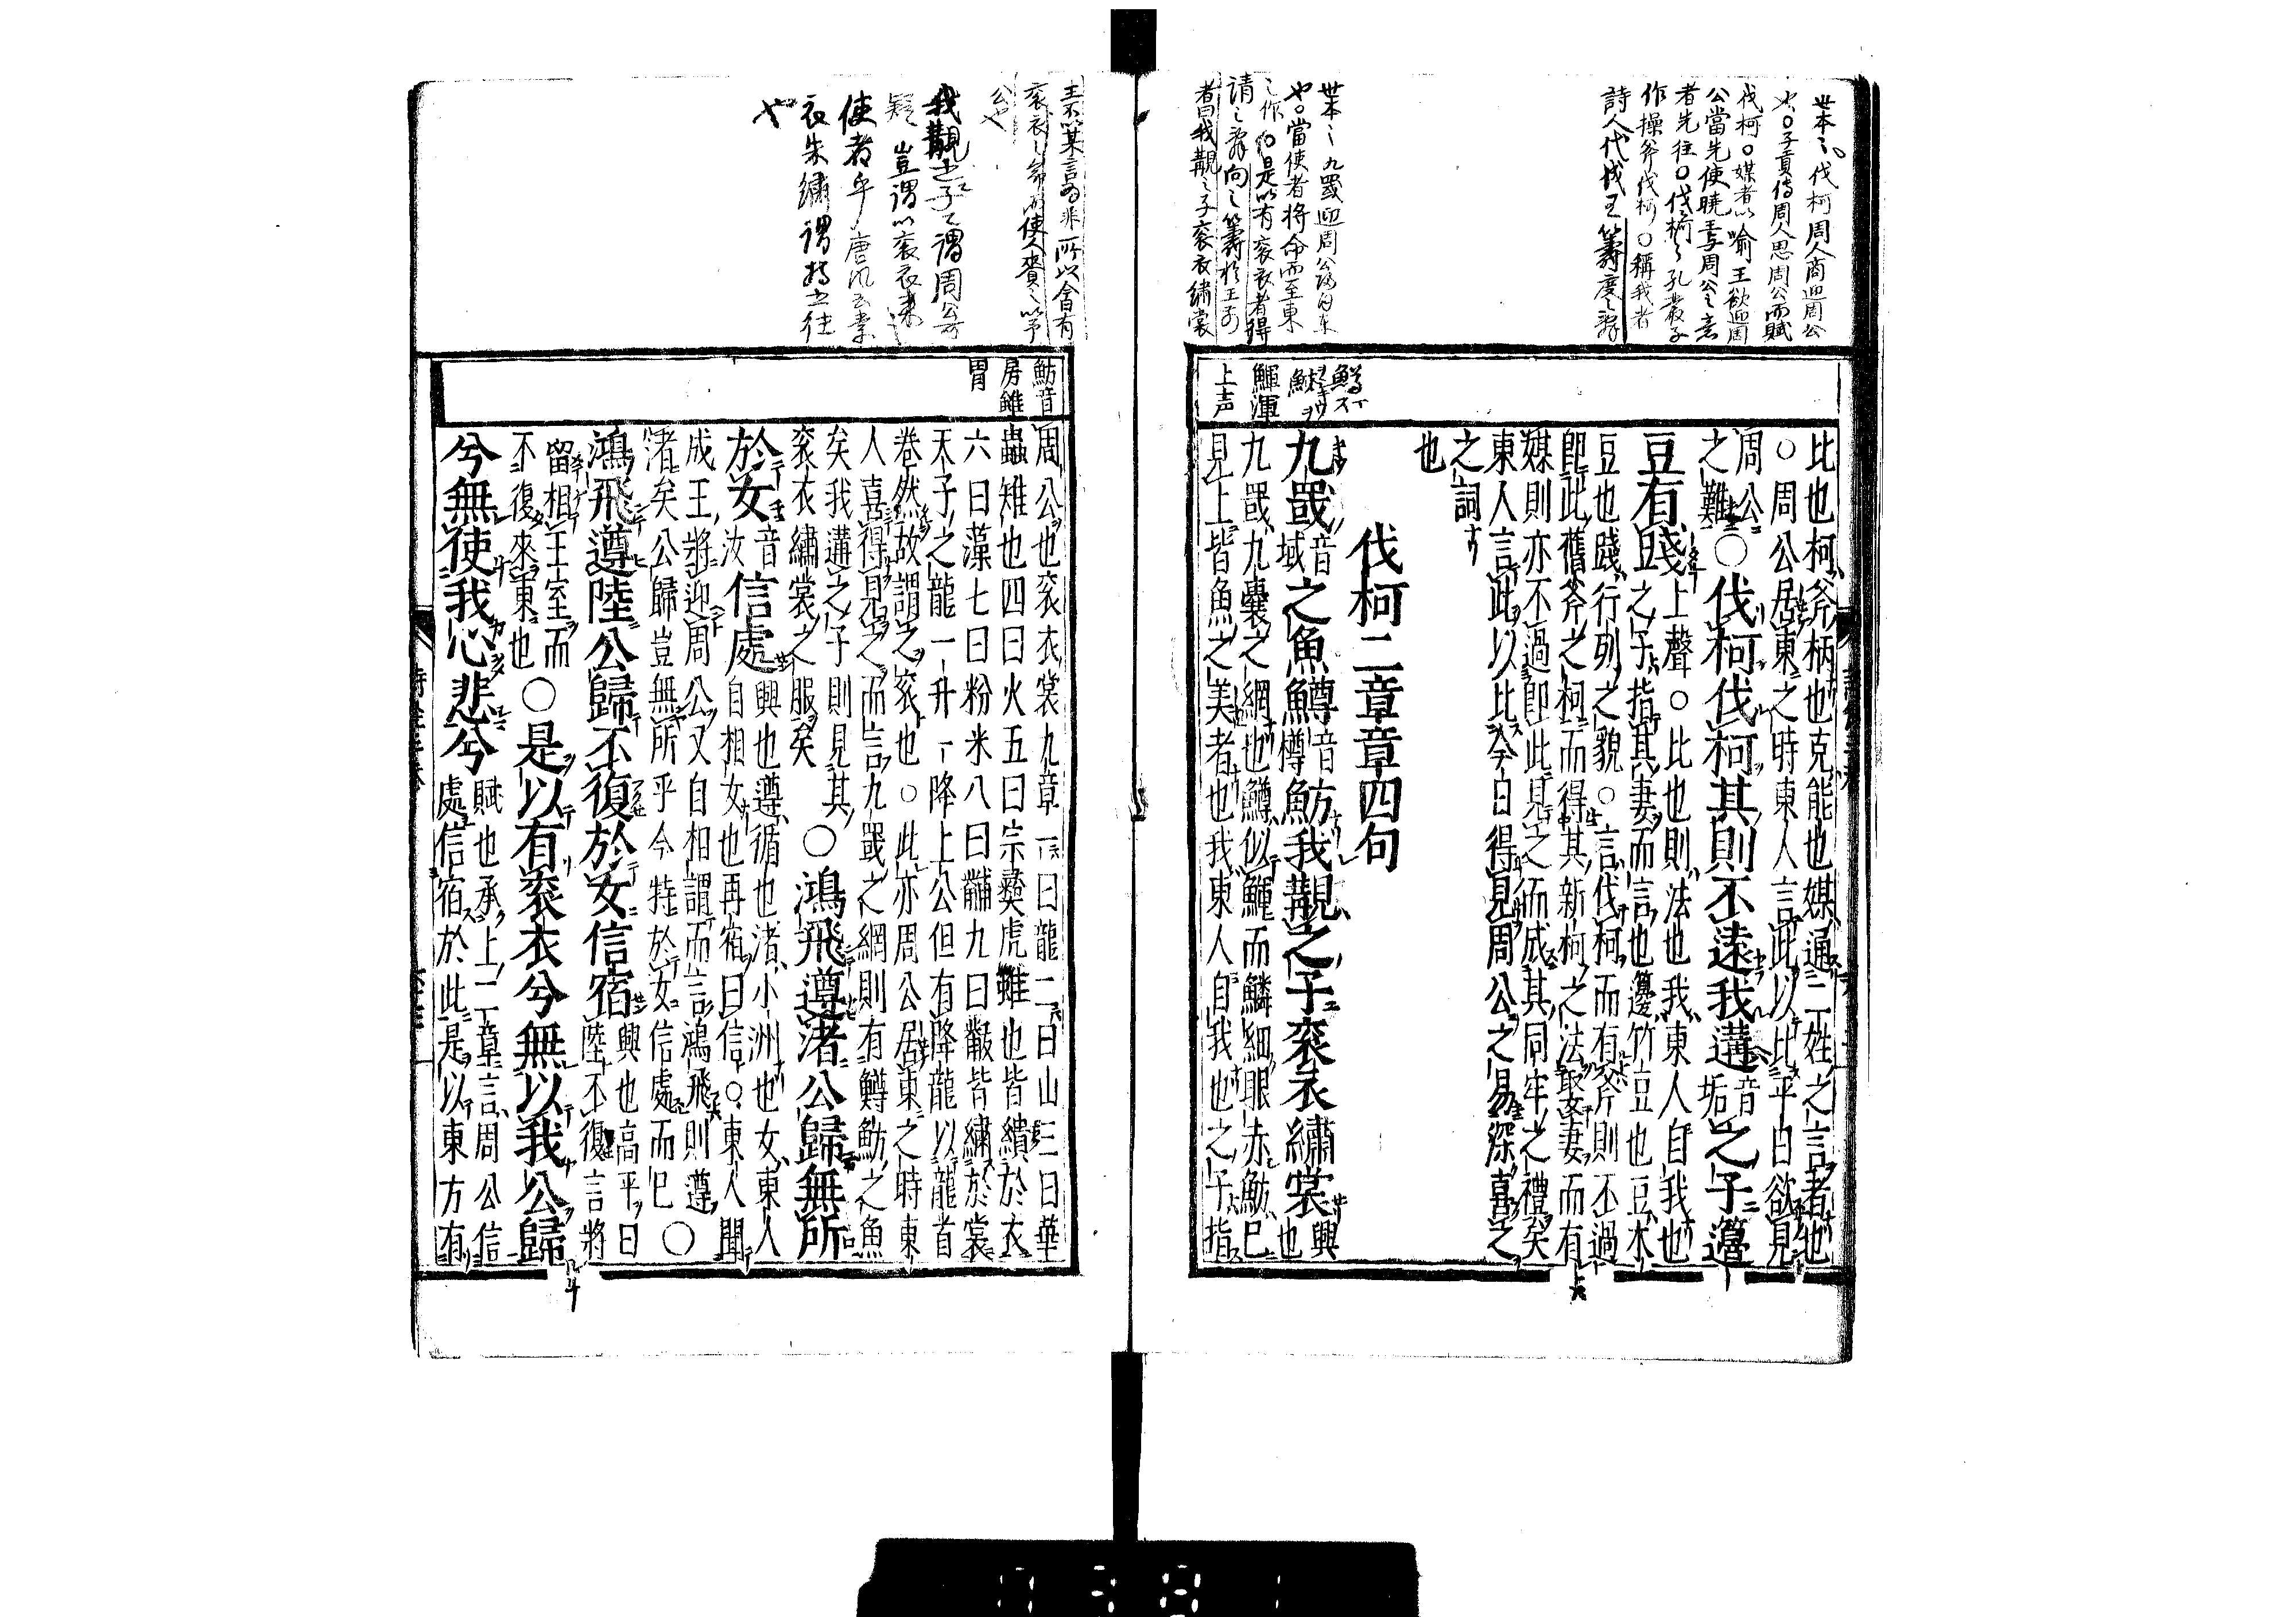 世本〻伐柯周人商迎周公
也〇子貢傳周人思周公而賦
伐柯〇媒者以喻王欲迎周
公當先使曉王与周公之意
者先往〇伐柯〻孔叢子
作操斧伐柯〇稱我者
詩人代成王籌度之辭
世本〻九罭迎周公
也〇當使者将命而至東
〻作〇是以有袞衣者得
請〻辭向〻籌於王
者曰我覯之子袞衣繡裳
鱒
鯶渾
上声
比也柯斧柄也克能也媒通二姓之言者也
〇周公居東之時東人言此以比平日欲見
周公之難〇伐柯伐柯其則不遠我遘音垢之子籩
豆有踐上聲〇比也則法也我東人自我也
之子指其妻而言也籩竹豆也豆木
豆也踐行列之貌〇言伐柯而有斧則不過
即此舊斧之柯而得其新柯之法娶妻而有
媒則亦不過即此見之而成其同牢之禮矣
東人言此以比今日得見周公之易深喜之
之詞
也
伐柯二章章四句
九罭音域之魚鱒音樽魴我覯之子袞衣繡裳興也
九罭九囊之網也鱒似鯶而鱗細眼赤魴已
見上皆魚之美者也我東人自我也之子指
王不以某言為非所以會有
袞衣〻命而使人賚〻以予
公也
我覯之子〻謂周公
疑豈謂以袞衣來
使者乎唐風云素
衣朱繡謂持之往
也
魴音
房雖
胃
周公也袞衣裳九章一曰龍二曰山三曰華
蟲雉也四曰火五曰宗彝虎蜼也皆繢於衣
六曰藻七曰粉米八曰黼九曰黻皆繡於裳
天子之龍一升一降上公但有降龍以龍首
卷然故謂之袞也〇此亦周公居東之時東
人喜得見之而言九罭之網則有鱒魴之魚
矣我遘之子則見其
袞衣繡裳之服矣〇鴻飛遵渚公歸無所
於女音汝信處興也遵循也渚小洲也女東人
自相女也再宿曰信〇東人聞
成王將迎周公又自相謂而言鴻飛則遵
渚矣公歸豈無所乎今特於女信處而已〇
鴻飛遵陸公歸不復於女信宿興也高平曰
陸不復言將
留相王室而
不復來東也〇是以有袞衣兮無以我公歸
兮無使我心悲兮賦也承上二章言周公信
處信宿於此是以東方有